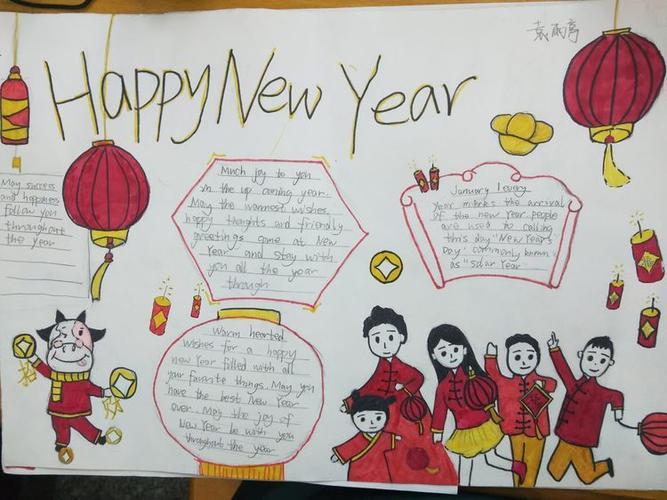 袁雨
Happy New Year
May success
and happiness
follow you
throughout
the year
Much joy to you
in the up coming year.
May the warmest wishes,
happy thoughts and friendly
greetings come at New
Year and stay with
you all the year
through
January 1 every
Year mittks the arrival
of the new year. people
are used to calling
this day "New Year's
Day" commonly known
as "Solar Year"
Warm hearted
wishes for a happy
new Year filled with all
your favorite things. May you
have the best New Year
ever. May the joy of
New Year be with you
throughout the year